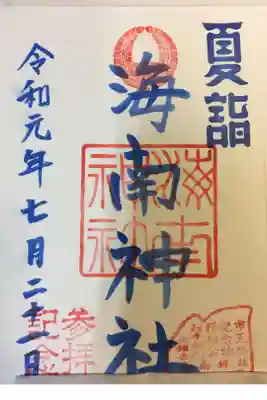 夏詣
海南神社
令和元年七月二十一日
海南神社
参拝
記念